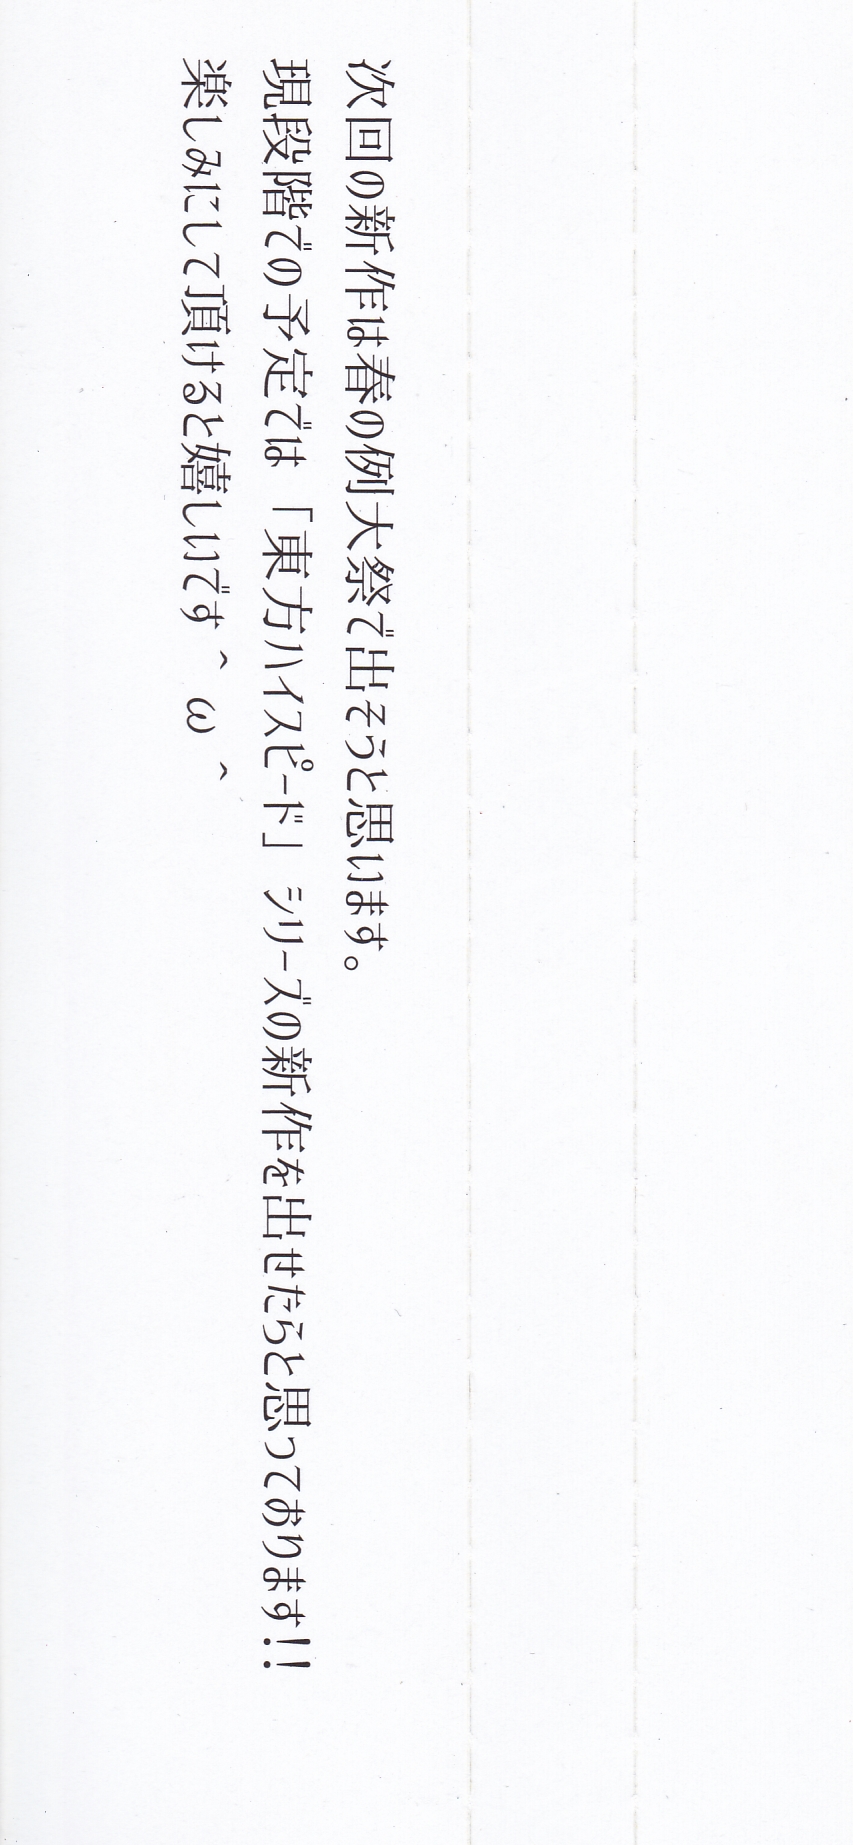 次回の新作は春の例大祭で出そうと思います。
現段階での予定では「東方ハイスピード」シリーズの新作を出せたらと思っております!!
楽しみにして頂けると嬉しいです＾ω＾